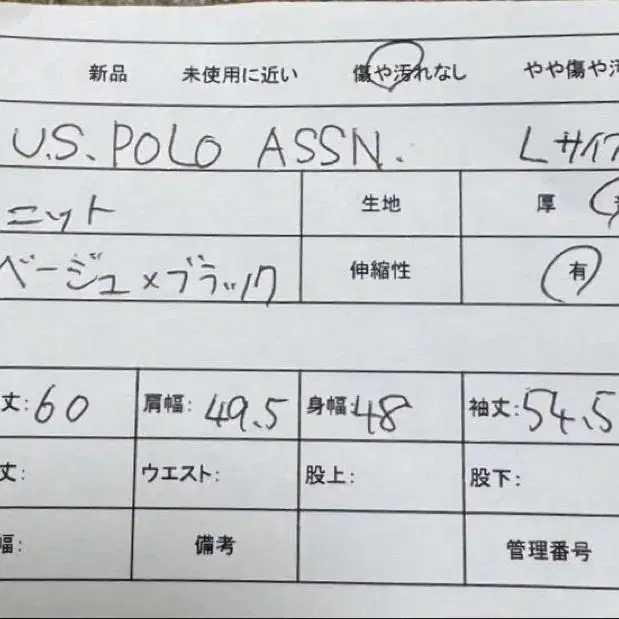 新品 未使用に近い 傷や汚れなし やや傷や汚
U.S. POLO ASSN. Lサイズ
ニット 生地 厚
ベージュ×ブラック 伸縮性 有
丈:60 肩幅: 49.5 身幅:48 袖丈:54.5
丈: ウエスト: 股上: 股下:
幅: 備考 管理番号